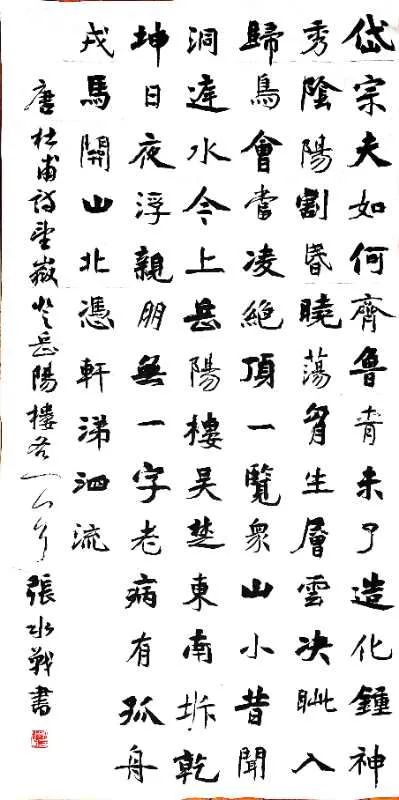 岱宗夫如何齊魯青未了造化鍾神
秀陰陽割昏曉蕩胷生層雲決眦入
歸鳥會當凌絕頂一覽衆山小昔聞
洞庭水今上岳陽樓吳楚東南坼乾
坤日夜浮親朋無一字老病有孤舟
戎馬關山北憑軒涕泗流
唐杜甫詩望嶽登岳陽樓各一 張水戰書